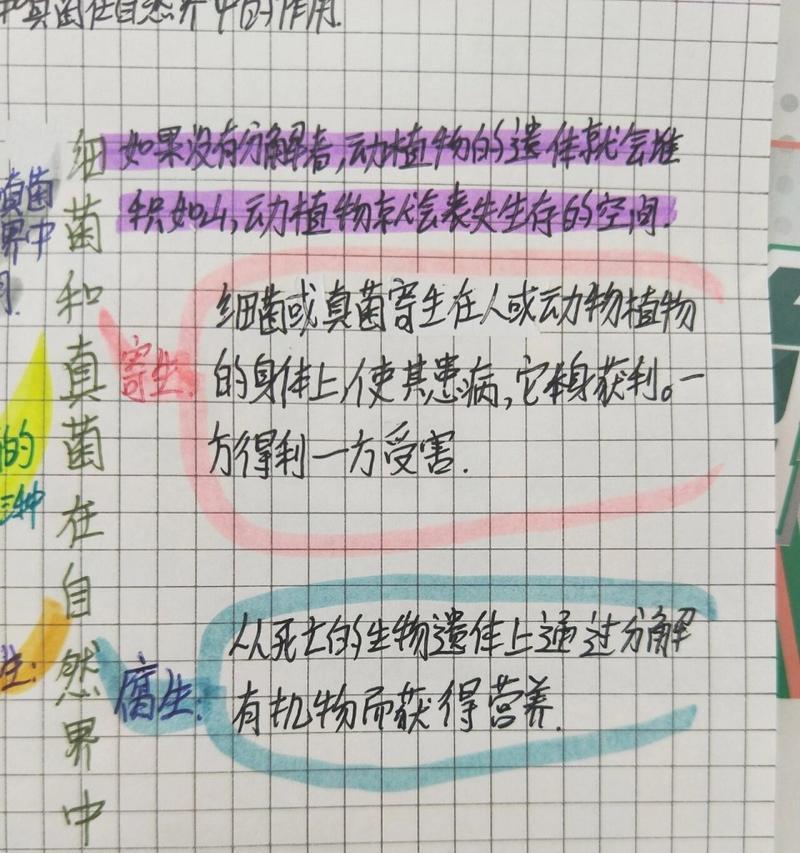 和真菌在自然界中的作用.
真菌
界中
细菌和真菌在自然界中
如果没有分解者,动植物的遗体就会堆
积如山,动植物就会丧失生存的空间.
寄生:
细菌或真菌寄生在人或动物植物
的身体上,使其患病,它本身获利。一
方得利一方受害.
的
三种
生:
腐生:
从死亡的生物遗体上通过分解
有机物而获得营养.